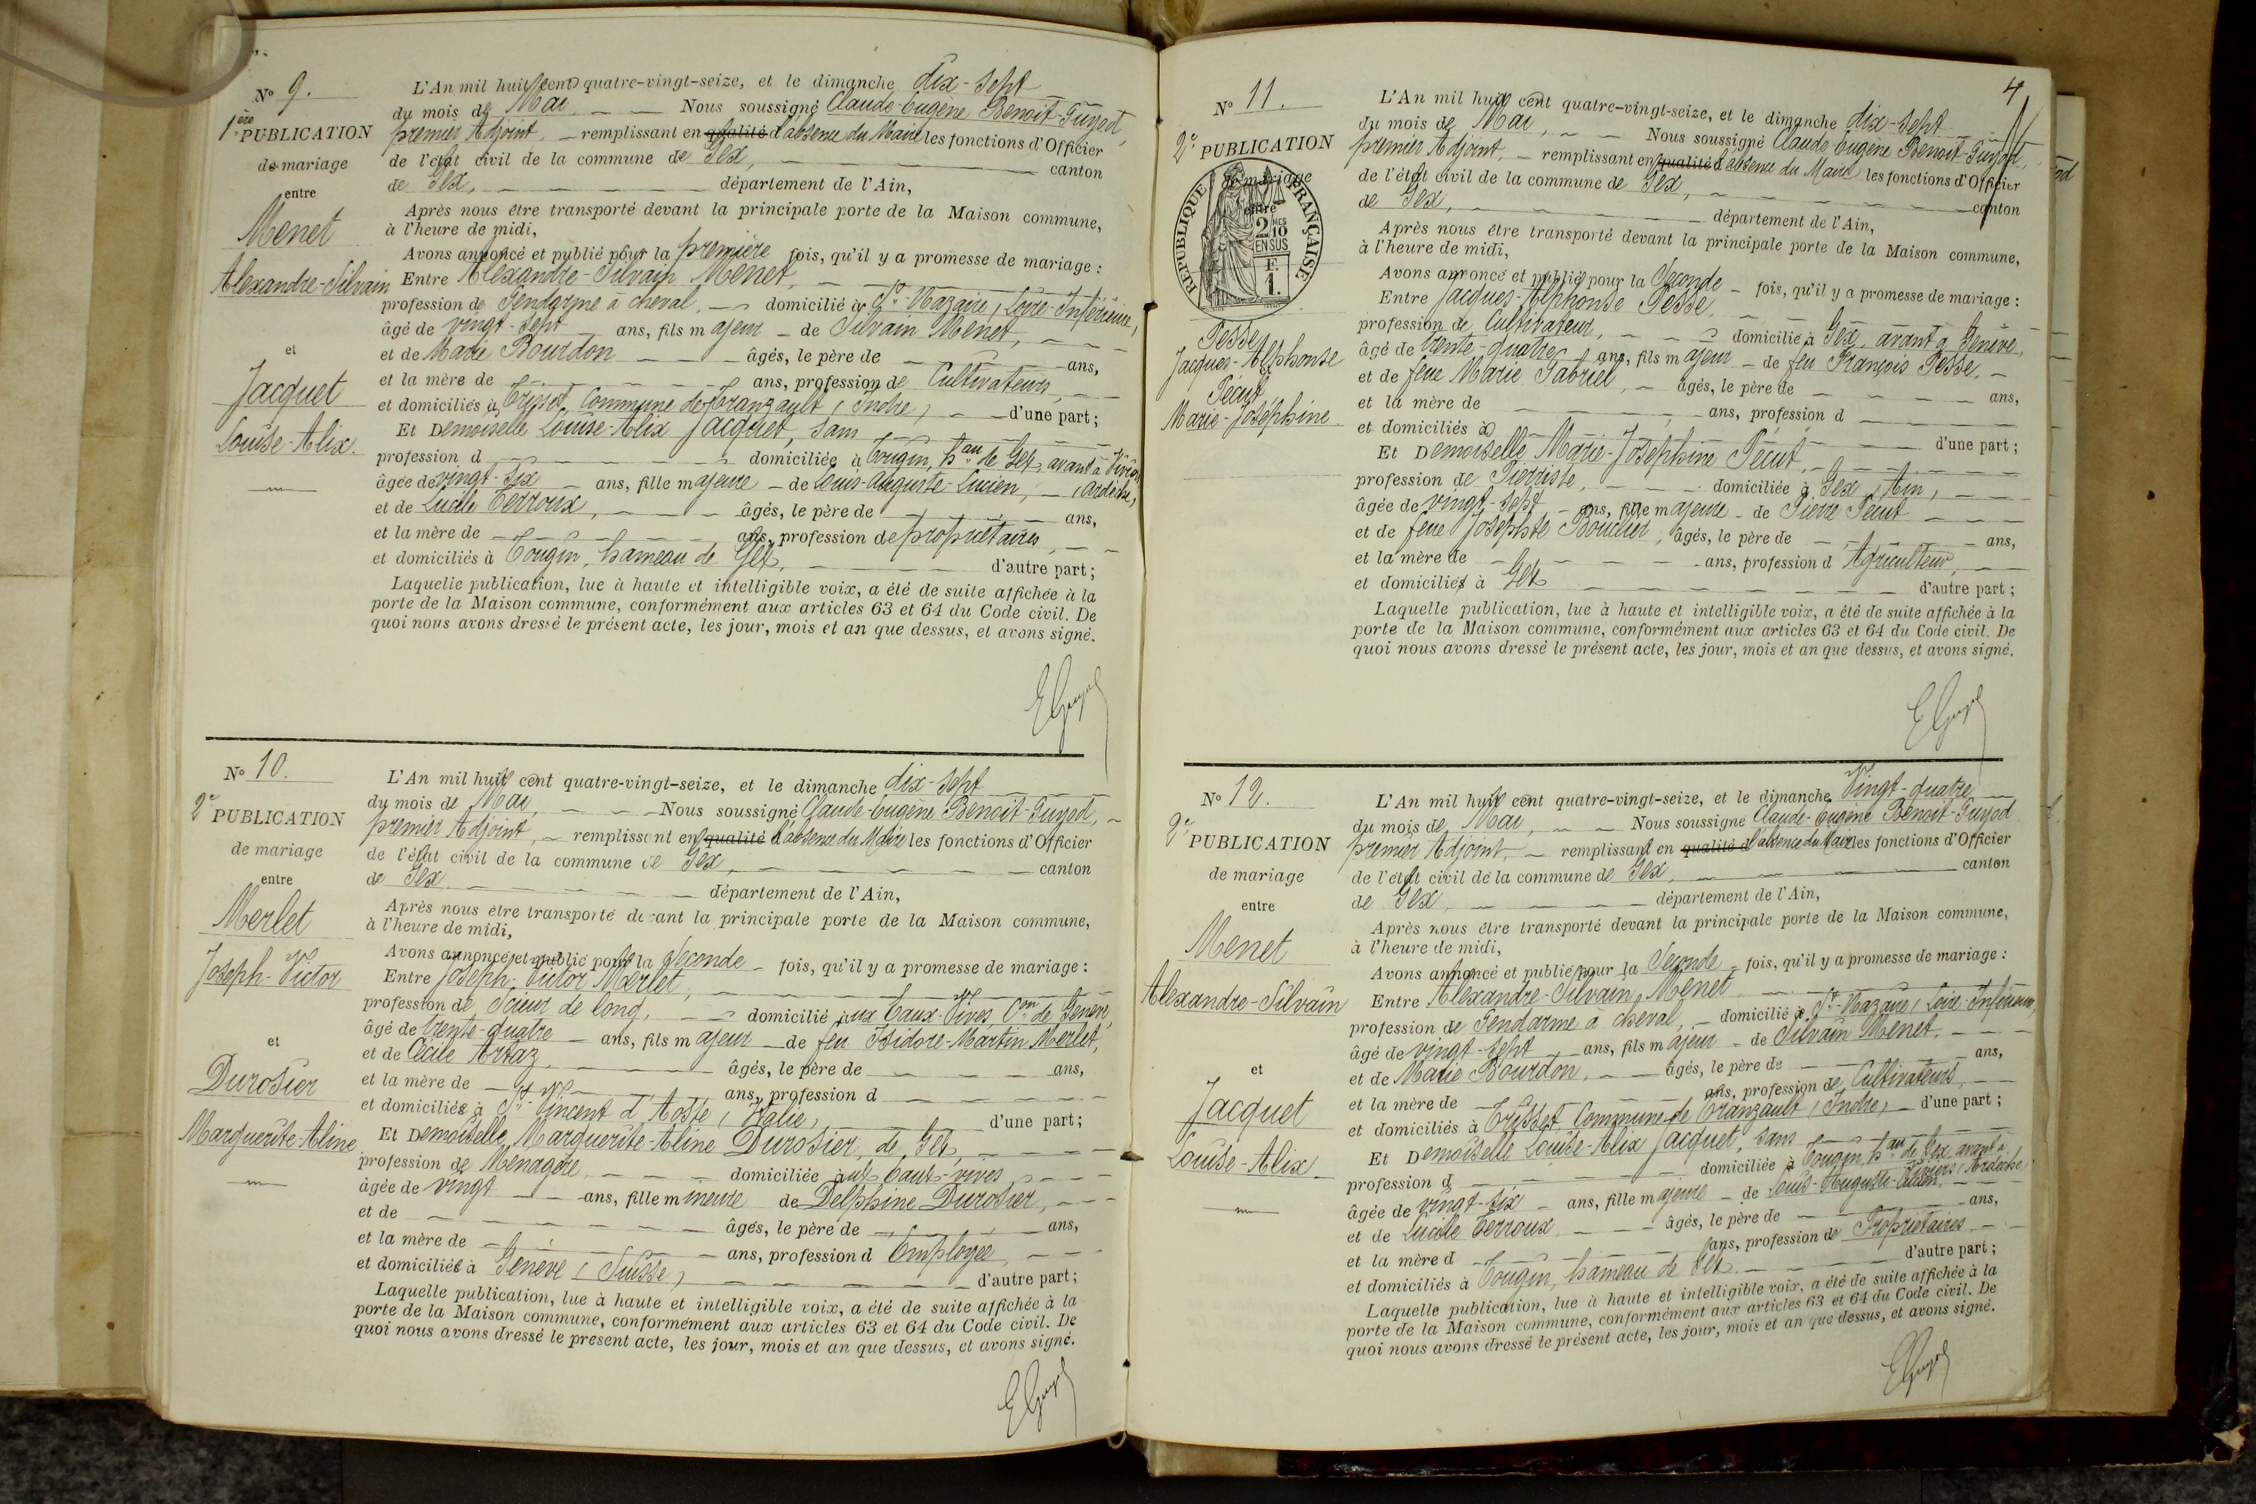 N° 9.
1ère PUBLICATION
de mariage
entre
Menet
Alexandre-Silvain
et
Jacquet
Louise-Alix.
L'An mil huit cent quatre-vingt-seize, et le dimanche dix-sept
du mois de Mai Nous soussigné Claude-Eugène Benoit-Guyod,
premier Adjoint, remplissant en qualité d'absence du Maire les fonctions d'Officier
de l'état civil de la commune de Gex, canton
de Gex, département de l'Ain,
Après nous être transporté devant la principale porte de la Maison commune,
à l'heure de midi,
Avons annoncé et publié pour la première fois, qu'il y a promesse de mariage :
Entre Alexandre-Silvain Menet,
profession de Gendarme à cheval, domicilié à St-Nazaire (Loire-Inférieure)
âgé de vingt-sept ans, fils majeur de Silvain Menet,
et de Marie Bourdon âgés, le père de ans,
et la mère de ans, profession de Cultivateurs,
et domiciliés à Trisset, Commune de Tranzault (Indre) d'une part ;
Et Demoiselle Louise-Alix Jacquet, sans
profession d domiciliée à Tougin, hau de Gex, avant à Viviers
âgée de vingt-six ans, fille majeure de Louis-Auguste-Lucien, (Ardèche)
et de Lucile Terroux, âgés, le père de ans,
et la mère de ans, profession de propriétaires,
et domiciliés à Tougin, hameau de Gex, d'autre part ;
Laquelle publication, lue à haute et intelligible voix, a été de suite affichée à la
porte de la Maison commune, conformément aux articles 63 et 64 du Code civil. De
quoi nous avons dressé le présent acte, les jour, mois et an que dessus, et avons signé.
EGuyod
N° 10.
2e PUBLICATION
de mariage
entre
Merlet
Joseph-Victor
et
Durosier
Marguerite-Aline
L'An mil huit cent quatre-vingt-seize, et le dimanche dix-sept
du mois de Mai, Nous soussigné Claude-Eugène Benoit-Guyod,
premier Adjoint, remplissant en qualité d'absence du Maire les fonctions d'Officier
de l'état civil de la commune de Gex, canton
de Gex département de l'Ain,
Après nous être transporté devant la principale porte de la Maison commune,
à l'heure de midi,
Avons annoncé et publié pour la Seconde fois, qu'il y a promesse de mariage :
Entre Joseph-Victor Merlet,
profession de Scieur de long, domicilié aux Eaux-Vives, Con de Genève,
âgé de trente-quatre ans, fils majeur de feu Isidore-Martin Merlet,
et de Cécile Artaz, âgés, le père de ans,
et la mère de ans, profession d
et domiciliés à St Vincent d'Aoste (Italie) d'une part ;
Et Demoiselle Marguerite-Aline Durosier, de Gex,
profession de Ménagère domiciliée aux Eaux-vives
âgée de vingt ans, fille mineure de Delphine Durosier,
et de âgés, le père de ans,
et la mère de ans, profession d Employée
et domiciliés à Genève (Suisse) d'autre part ;
Laquelle publication, lue à haute et intelligible voix, a été de suite affichée à la
porte de la Maison commune, conformément aux articles 63 et 64 du Code civil. De
quoi nous avons dressé le présent acte, les jour, mois et an que dessus, et avons signé.
EGuyod
4
N° 11.
2e PUBLICATION
de mariage
entre
RÉPUBLIQUE FRANÇAISE
2 10
EN SUS
F.
1.
Pesse
Jacques-Alphonse
Pécut
Marie-Joséphine
L'An mil huit cent quatre-vingt-seize, et le dimanche dix-sept
du mois de Mai, Nous soussigné Claude-Eugène Benoit-Guyod,
premier Adjoint, remplissant en qualité d'absence du Maire les fonctions d'Officier
de l'état civil de la commune de Gex, canton
de Gex, département de l'Ain,
Après nous être transporté devant la principale porte de la Maison commune,
à l'heure de midi,
Avons annoncé et publié pour la Seconde fois, qu'il y a promesse de mariage :
Entre Jacques-Alphonse Pesse,
profession de Cultivateur, domicilié à Gex, avant à Genève,
âgé de trente-quatre ans, fils majeur de feu François Pesse,
et de feue Marie Gabriel, âgés, le père de ans,
et la mère de ans, profession d
et domiciliés à d'une part ;
Et Demoiselle Marie-Joséphine Pécut,
profession de Pierriste, domiciliée à Gex (Ain)
âgée de vingt-sept ans, fille majeure de Pierre Pécut
et de feue Josephte Bouclier, âgés, le père de ans,
et la mère de ans, profession d'Agriculteur,
et domiciliés à Gex d'autre part ;
Laquelle publication, lue à haute et intelligible voix, a été de suite affichée à la
porte de la Maison commune, conformément aux articles 63 et 64 du Code civil. De
quoi nous avons dressé le présent acte, les jour, mois et an que dessus, et avons signé.
EGuyod
N° 12.
2e PUBLICATION
de mariage
entre
Menet
Alexandre-Silvain
et
Jacquet
Louise-Alix
L'An mil huit cent quatre-vingt-seize, et le dimanche Vingt-quatre
du mois de Mai, Nous soussigné Claude-Eugène Benoit-Guyod
premier Adjoint, remplissant en qualité d'absence du Maire les fonctions d'Officier
de l'état civil de la commune de Gex, canton
de Gex, département de l'Ain,
Après nous être transporté devant la principale porte de la Maison commune,
à l'heure de midi,
Avons annoncé et publié pour la Seconde fois, qu'il y a promesse de mariage :
Entre Alexandre-Silvain Menet
profession de Gendarme à cheval, domicilié à St-Nazaire (Loire-Inférieure)
âgé de vingt-sept ans, fils majeur de Silvain Menet,
et de Marie Bourdon, âgés, le père de ans,
et la mère de ans, profession de Cultivateurs
et domiciliés à Trisset, Commune de Tranzault (Indre) d'une part ;
Et Demoiselle Louise-Alix Jacquet, sans
profession d domiciliée à Tougin, hau de Gex, avant à Viviers (Ardèche)
âgée de vingt-six ans, fille majeure de Louis-Auguste-Lucien
et de Lucile Terroux âgés, le père de ans,
et la mère d ans, profession de Propriétaires
et domiciliés à Tougin, hameau de Gex d'autre part ;
Laquelle publication, lue à haute et intelligible voix, a été de suite affichée à la
porte de la Maison commune, conformément aux articles 63 et 64 du Code civil. De
quoi nous avons dressé le présent acte, les jour, mois et an que dessus, et avons signé.
EGuyod